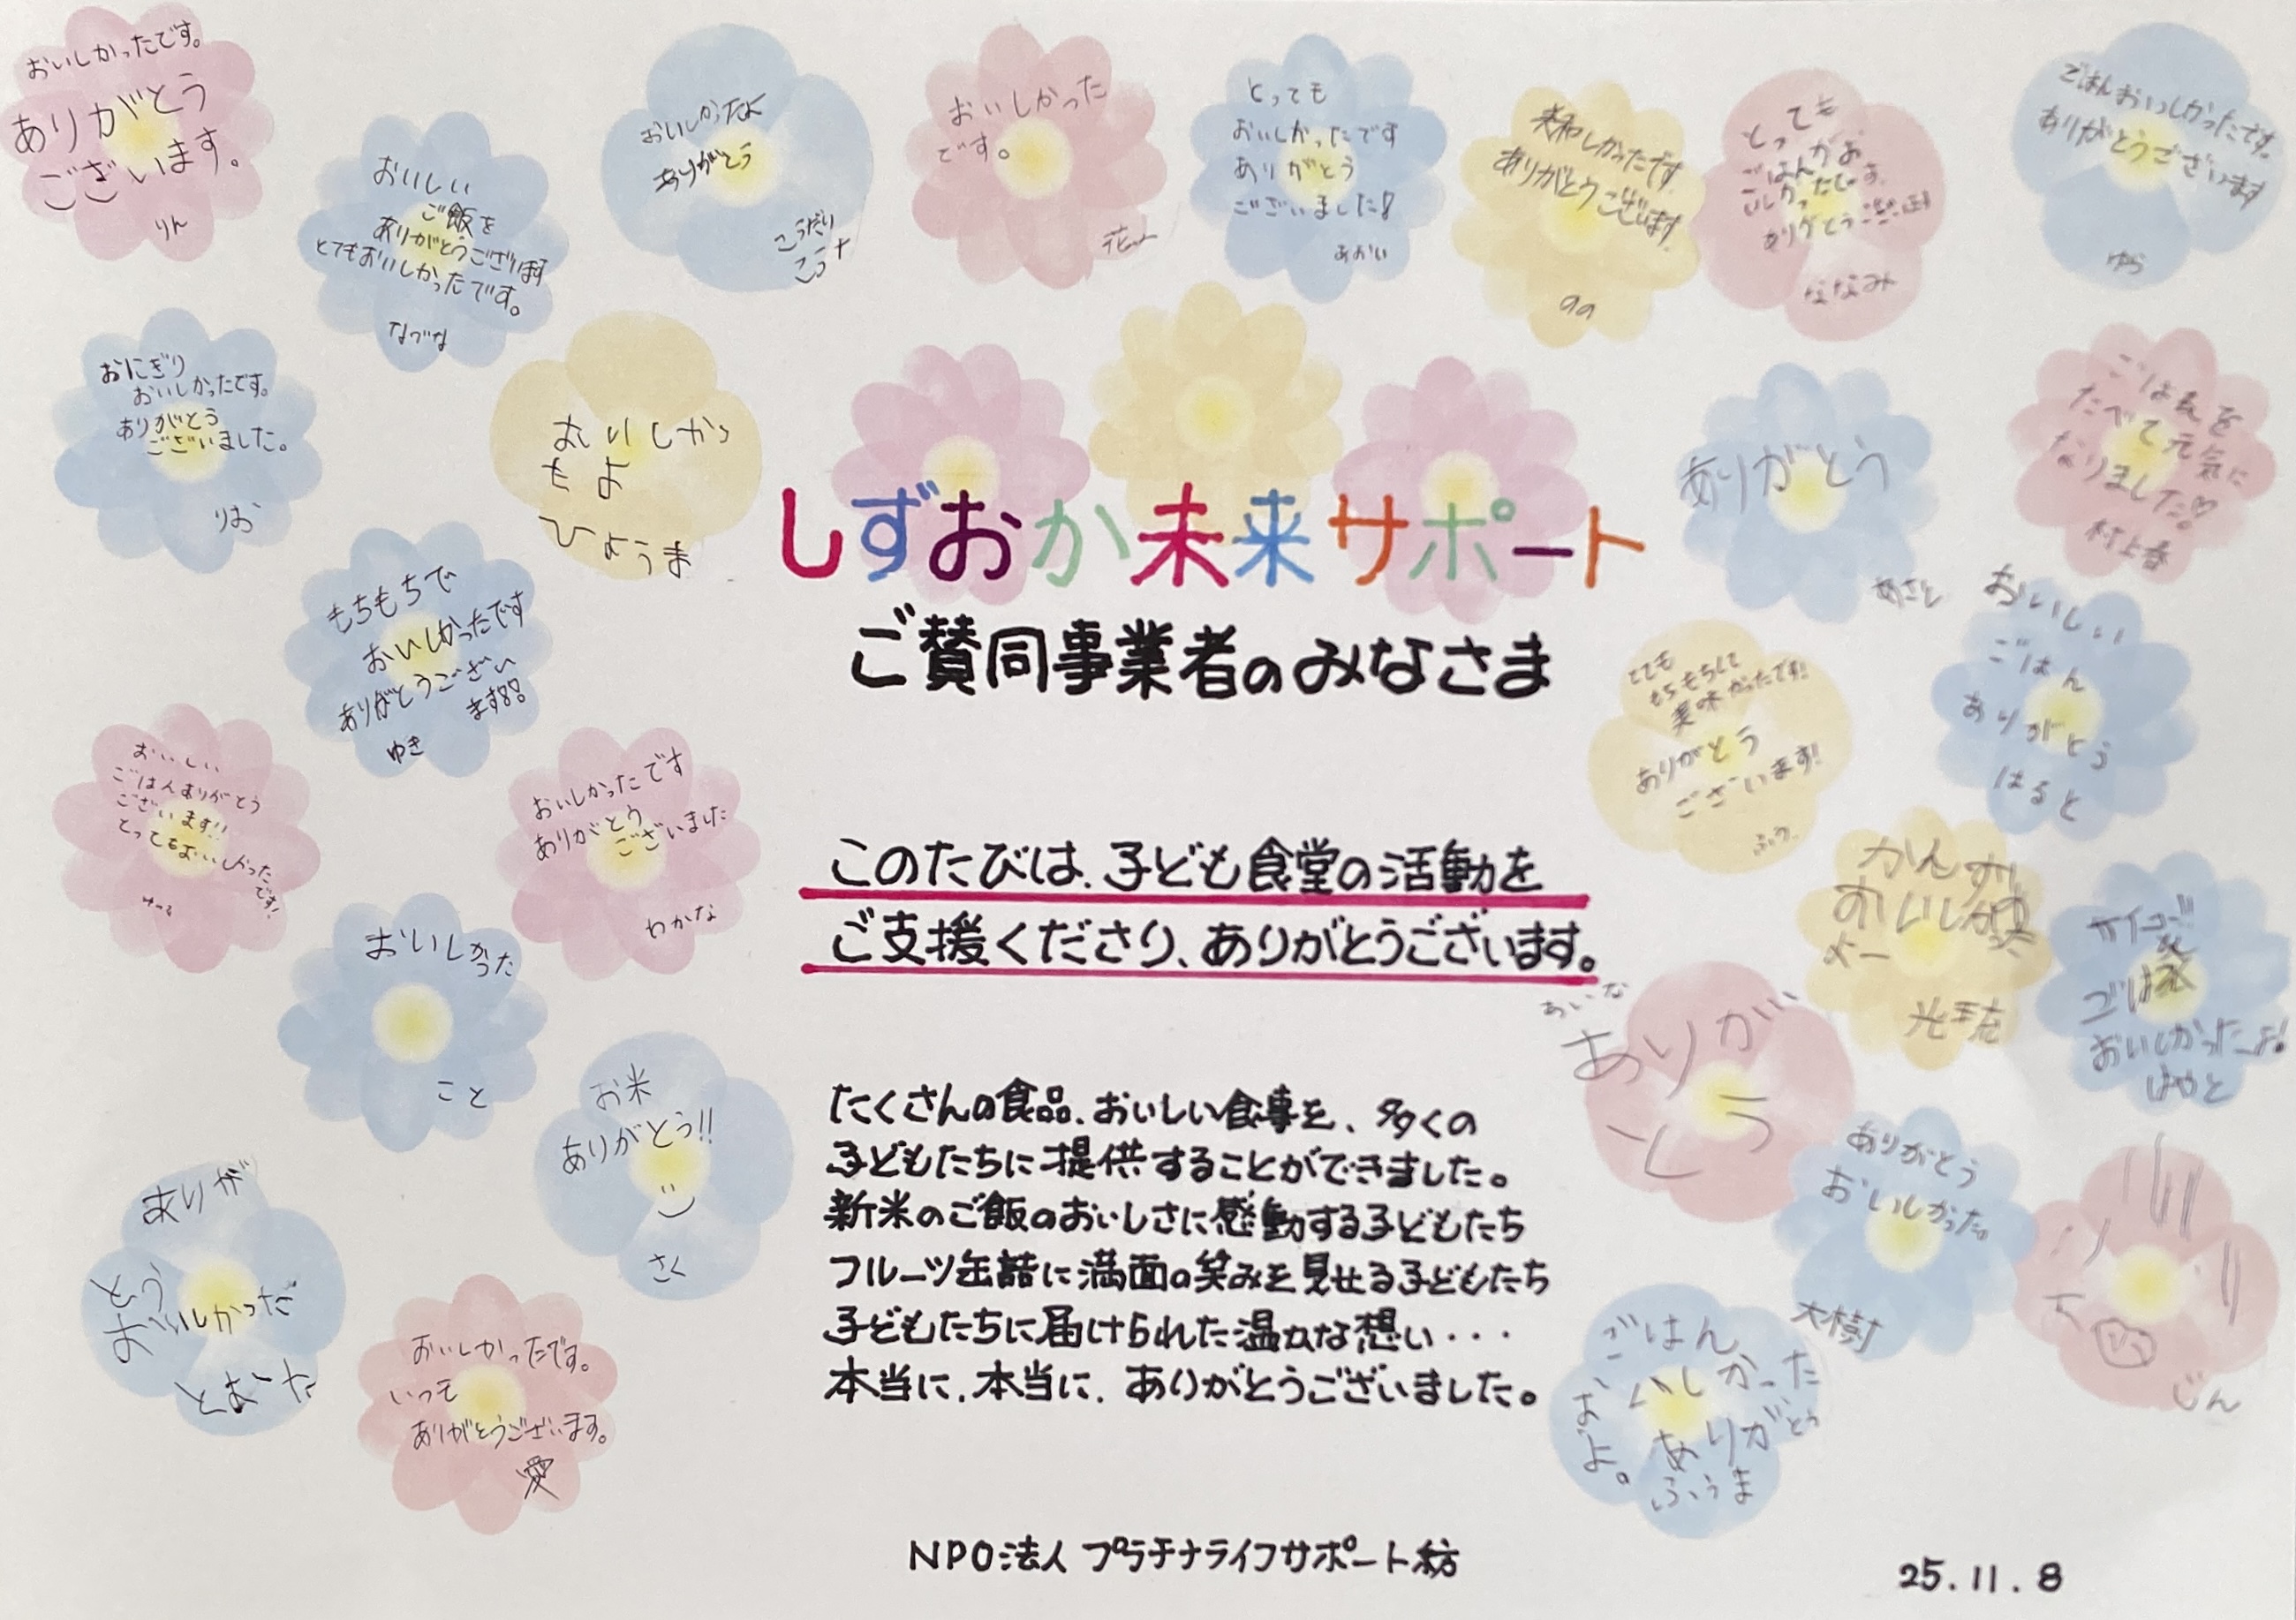 おいしかったです。
ありがとう
ございます。
りん
おいしい
ご飯を
ありがとうございます
とてもおいしかったです。
なづな
おいしかったよ
ありがとう
おいしかった
です。
とっても
おいしかったです
ありがとう
ございました!
あおい
美味しかったです
ありがとうございます
のの
とっても
ごはんがお
いしかったです。
ありがとう
ななみ
ごはんおいしかったです。
ありがとうございます
ゆら
おにぎり
おいしかったです。
ありがとう
ございました。
りお
おいしかっ
たよ
ひょうま
ありがとう
あさひ
ごはんを
たべて元気に
なりました。♡
村上春
しずおか未来サポート
ご賛同事業者のみなさま
もちもちで
おいしかったです
ありがとうござい
ます!!
ゆき
とても
もちもちして
美味かったです!
ありがとう
ございます!
おいしい
ごはん
ありがとう
はると
おいしい
ごはんありがとう
ございます!!
とってもおいしかった
です!
おいしかったです
ありがとう
ございました
わかな
このたびは、子ども食堂の活動を
ご支援くださり、ありがとうございます。
かんずめ
おいしかった
よー
サイコー!!
ごはん
おいしかったよ!
はやと
おいしかった
こと
あいな
ありが
とう
お米
ありがとう!!
さく
たくさんの食品、おいしい食事を、多くの
子どもたちに提供することができました。
新米のご飯のおいしさに感動する子どもたち
フルーツ缶詰に満面の笑みを見せる子どもたち
子どもたちに届けられた温かな想い・・・
本当に、本当に、ありがとうございました。
ありがとう
おいしかった。
大樹
じん
ありが
とう
おいしかった
おいしかったです。
いつも
ありがとうございます。
愛
ごはん
おいしかった
よ。
ありがとう
ふうま
NPO法人 プラチナライフサポート紡
25.11.8